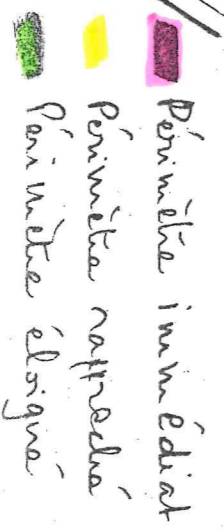 Périmètre immédiat
Périmètre rapproché
Périmètre éloigné